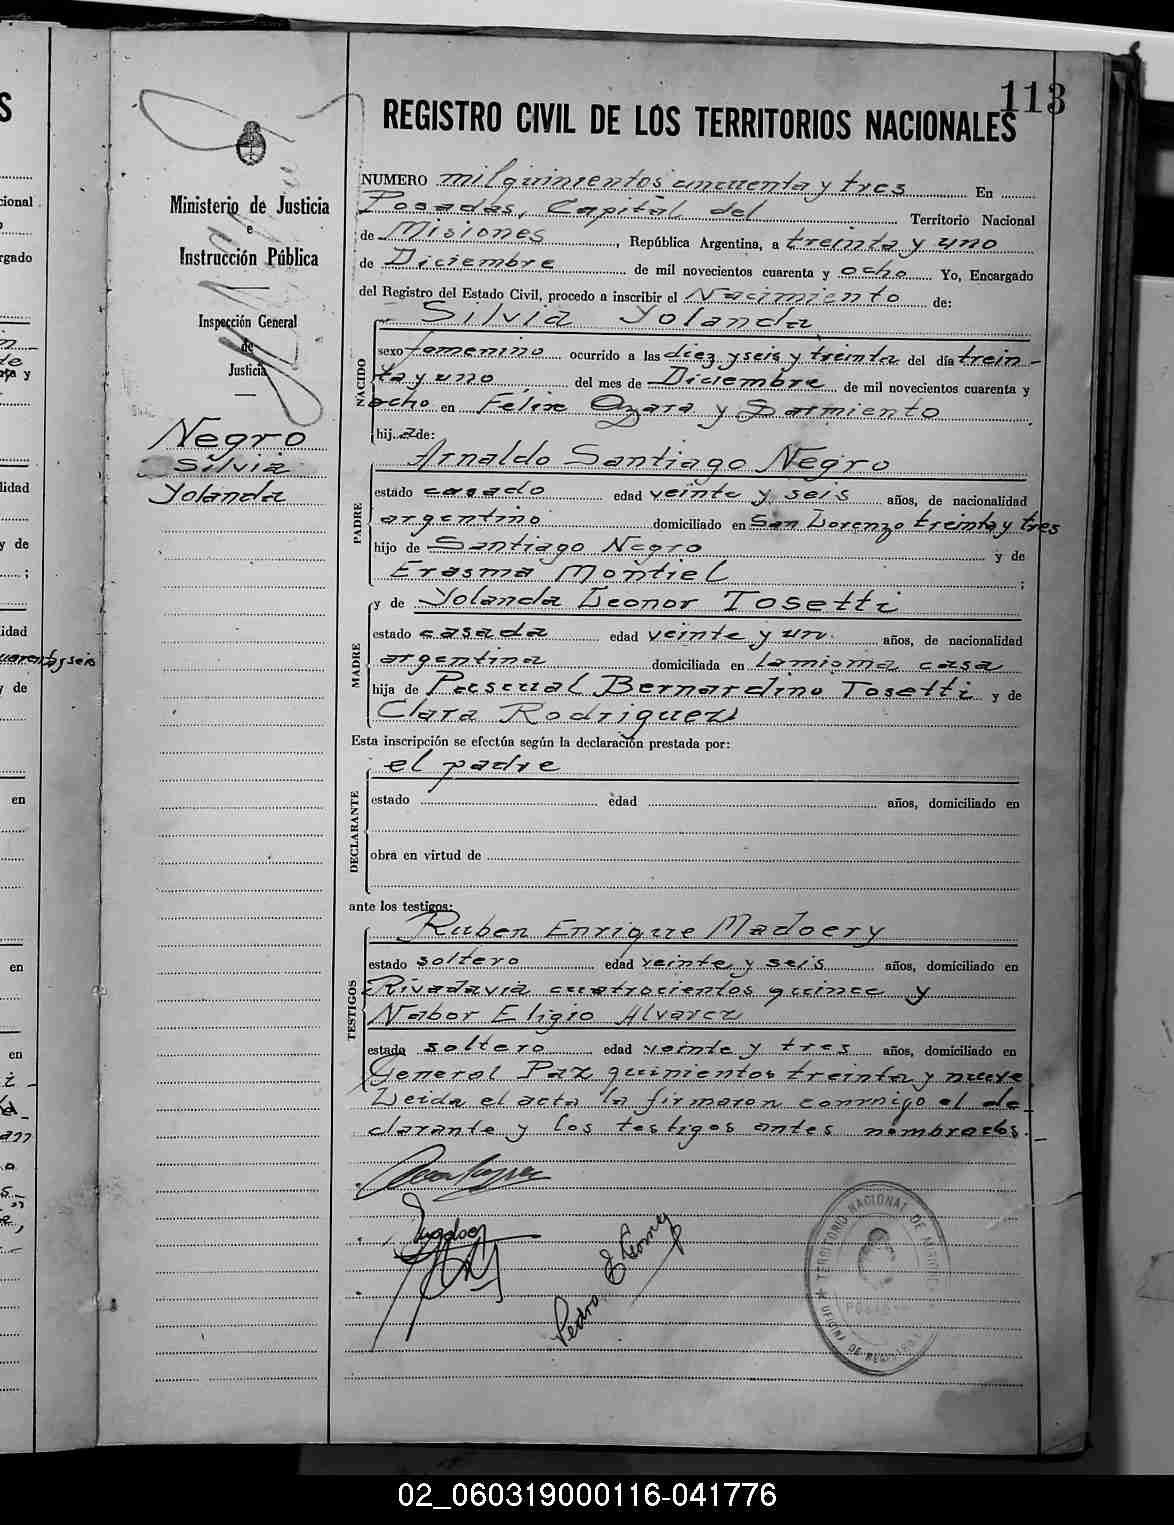 113
REGISTRO CIVIL DE LOS TERRITORIOS NACIONALES
Ministerio de Justicia
e
Instrucción Pública
Inspección General
de
Justicia
Negro
Silvia
Yolanda
NUMERO milquinientos cincuenta y tres En
Posadas, Capital del Territorio Nacional
de Misiones, República Argentina, a treinta y uno
de Diciembre de mil novecientos cuarenta y ocho Yo, Encargado
del Registro del Estado Civil, procedo a inscribir el Nacimiento de:
Silvia Yolanda
NACIDO
sexo femenino ocurrido a las diez y seis y treinta del día trein-
ta y uno del mes de Diciembre de mil novecientos cuarenta y
ocho en Felix Azara y Sarmiento
hij a de:
Arnaldo Santiago Negro
PADRE
estado casado edad veinte y seis años, de nacionalidad
argentino domiciliado en San Lorenzo treinta y tres
hijo de Santiago Negro y de
Erasma Montiel ;
y de Yolanda Leonor Tosetti
MADRE
estado casada edad veinte y un años, de nacionalidad
argentina domiciliada en la misma casa
hija de Pascual Bernardino Tosetti y de
Clara Rodriguez
Esta inscripción se efectúa según la declaración prestada por:
el padre
DECLARANTE
estado edad años, domiciliado en
obra en virtud de
ante los testigos:
Ruben Enrique Madoery
TESTIGOS
estado soltero edad veinte y seis años, domiciliado en
Rivadavia cuatrocientos quince y
Nabor Eligio Alvarez
estado soltero edad veinte y tres años, domiciliado en
General Paz quinientos treinta y nueve
Leida el acta la firmaron conmigo el de-
clarante y los testigos antes nombrados.-
Pedro E Gomez
TERRITORIO NACIONAL DE
02_060319000116-041776